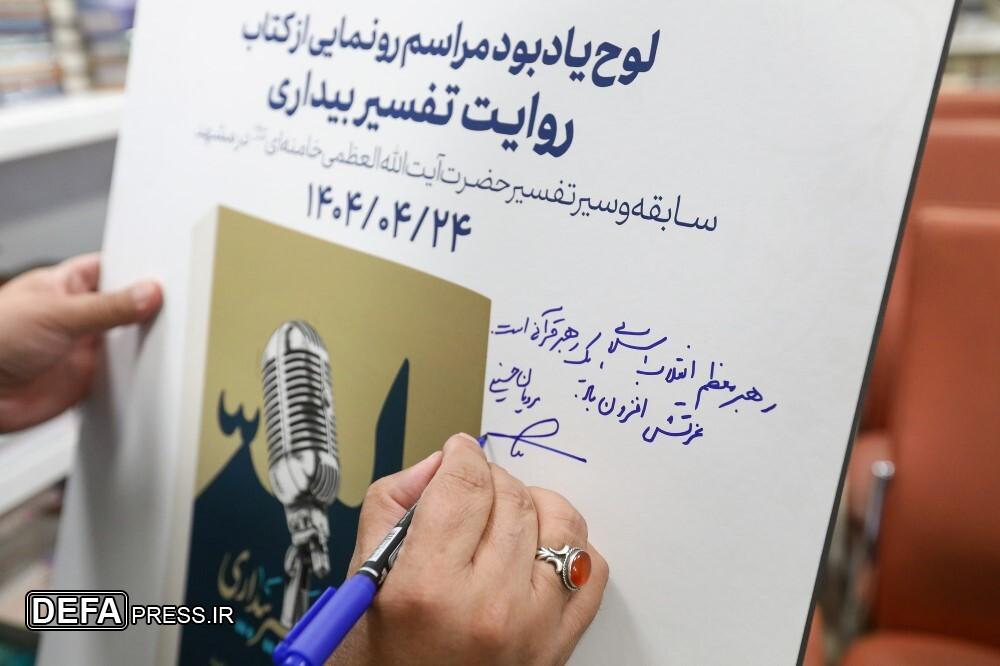 لوح یادبود مراسم رونمایی از کتاب
روایت تفسیر بیداری
سابقه و سیر تفسیر حضرت آیت الله العظمی خامنه‌ای در مشهد
۱۴۰۴/۰۴/۲۴
رهبر معظم انقلاب اسلامی یک رهبر قرآنی است.
عزتش افزون باد.
بیداری
DEFAPRESS.IR